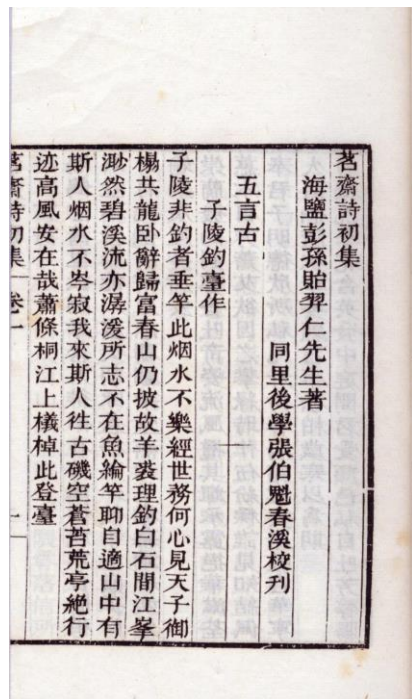 茗齋詩初集
海鹽彭孫貽羿仁先生著
同里後學張伯魁春溪校刊
五言古
子陵釣臺作
子陵非釣者垂竿此烟水不樂經世務何心見天子御
榻共龍卧辭歸富春山仍披故羊裘理釣白石間江峯
渺然碧溪流亦潺湲所志不在魚綸竿聊自適山中有
斯人烟水不岑寂我來斯人徃古磯空蒼苔荒亭絶行
迹高風安在哉蕭條桐江上檥棹此登臺
茗齋詩初集 卷一 一